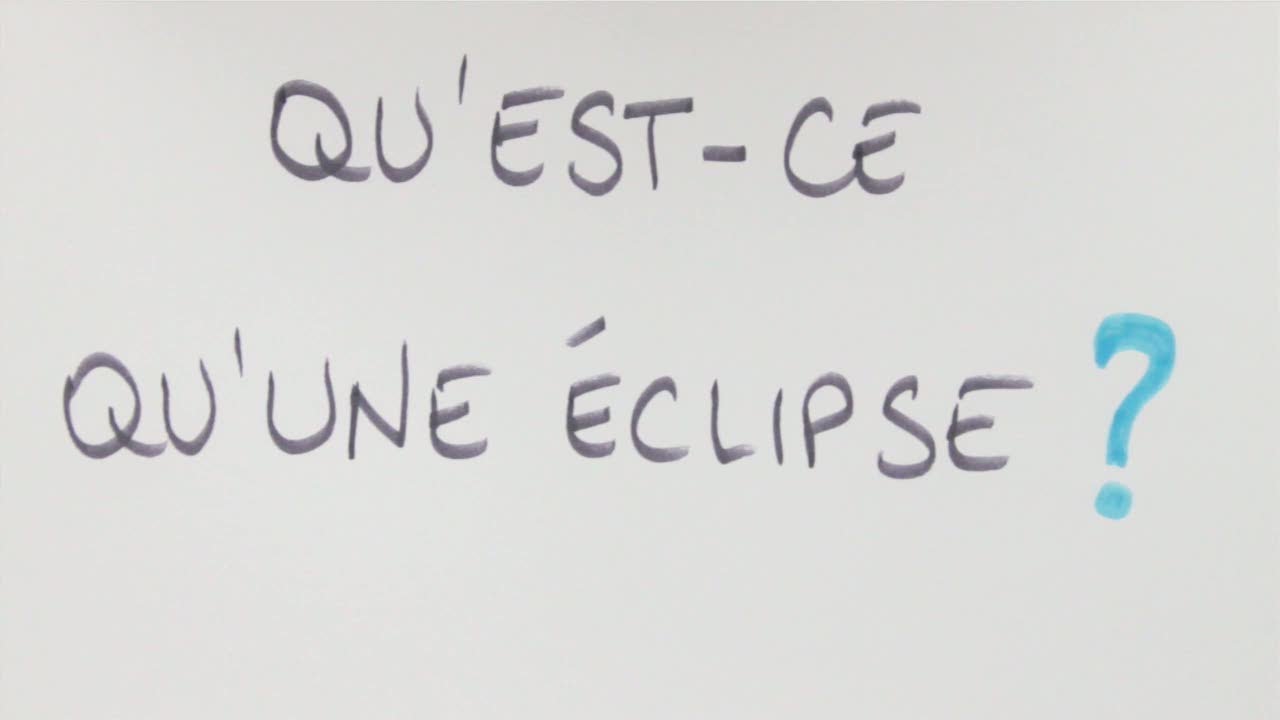 QU'EST-CE
QU'UNE ÉCLIPSE ?